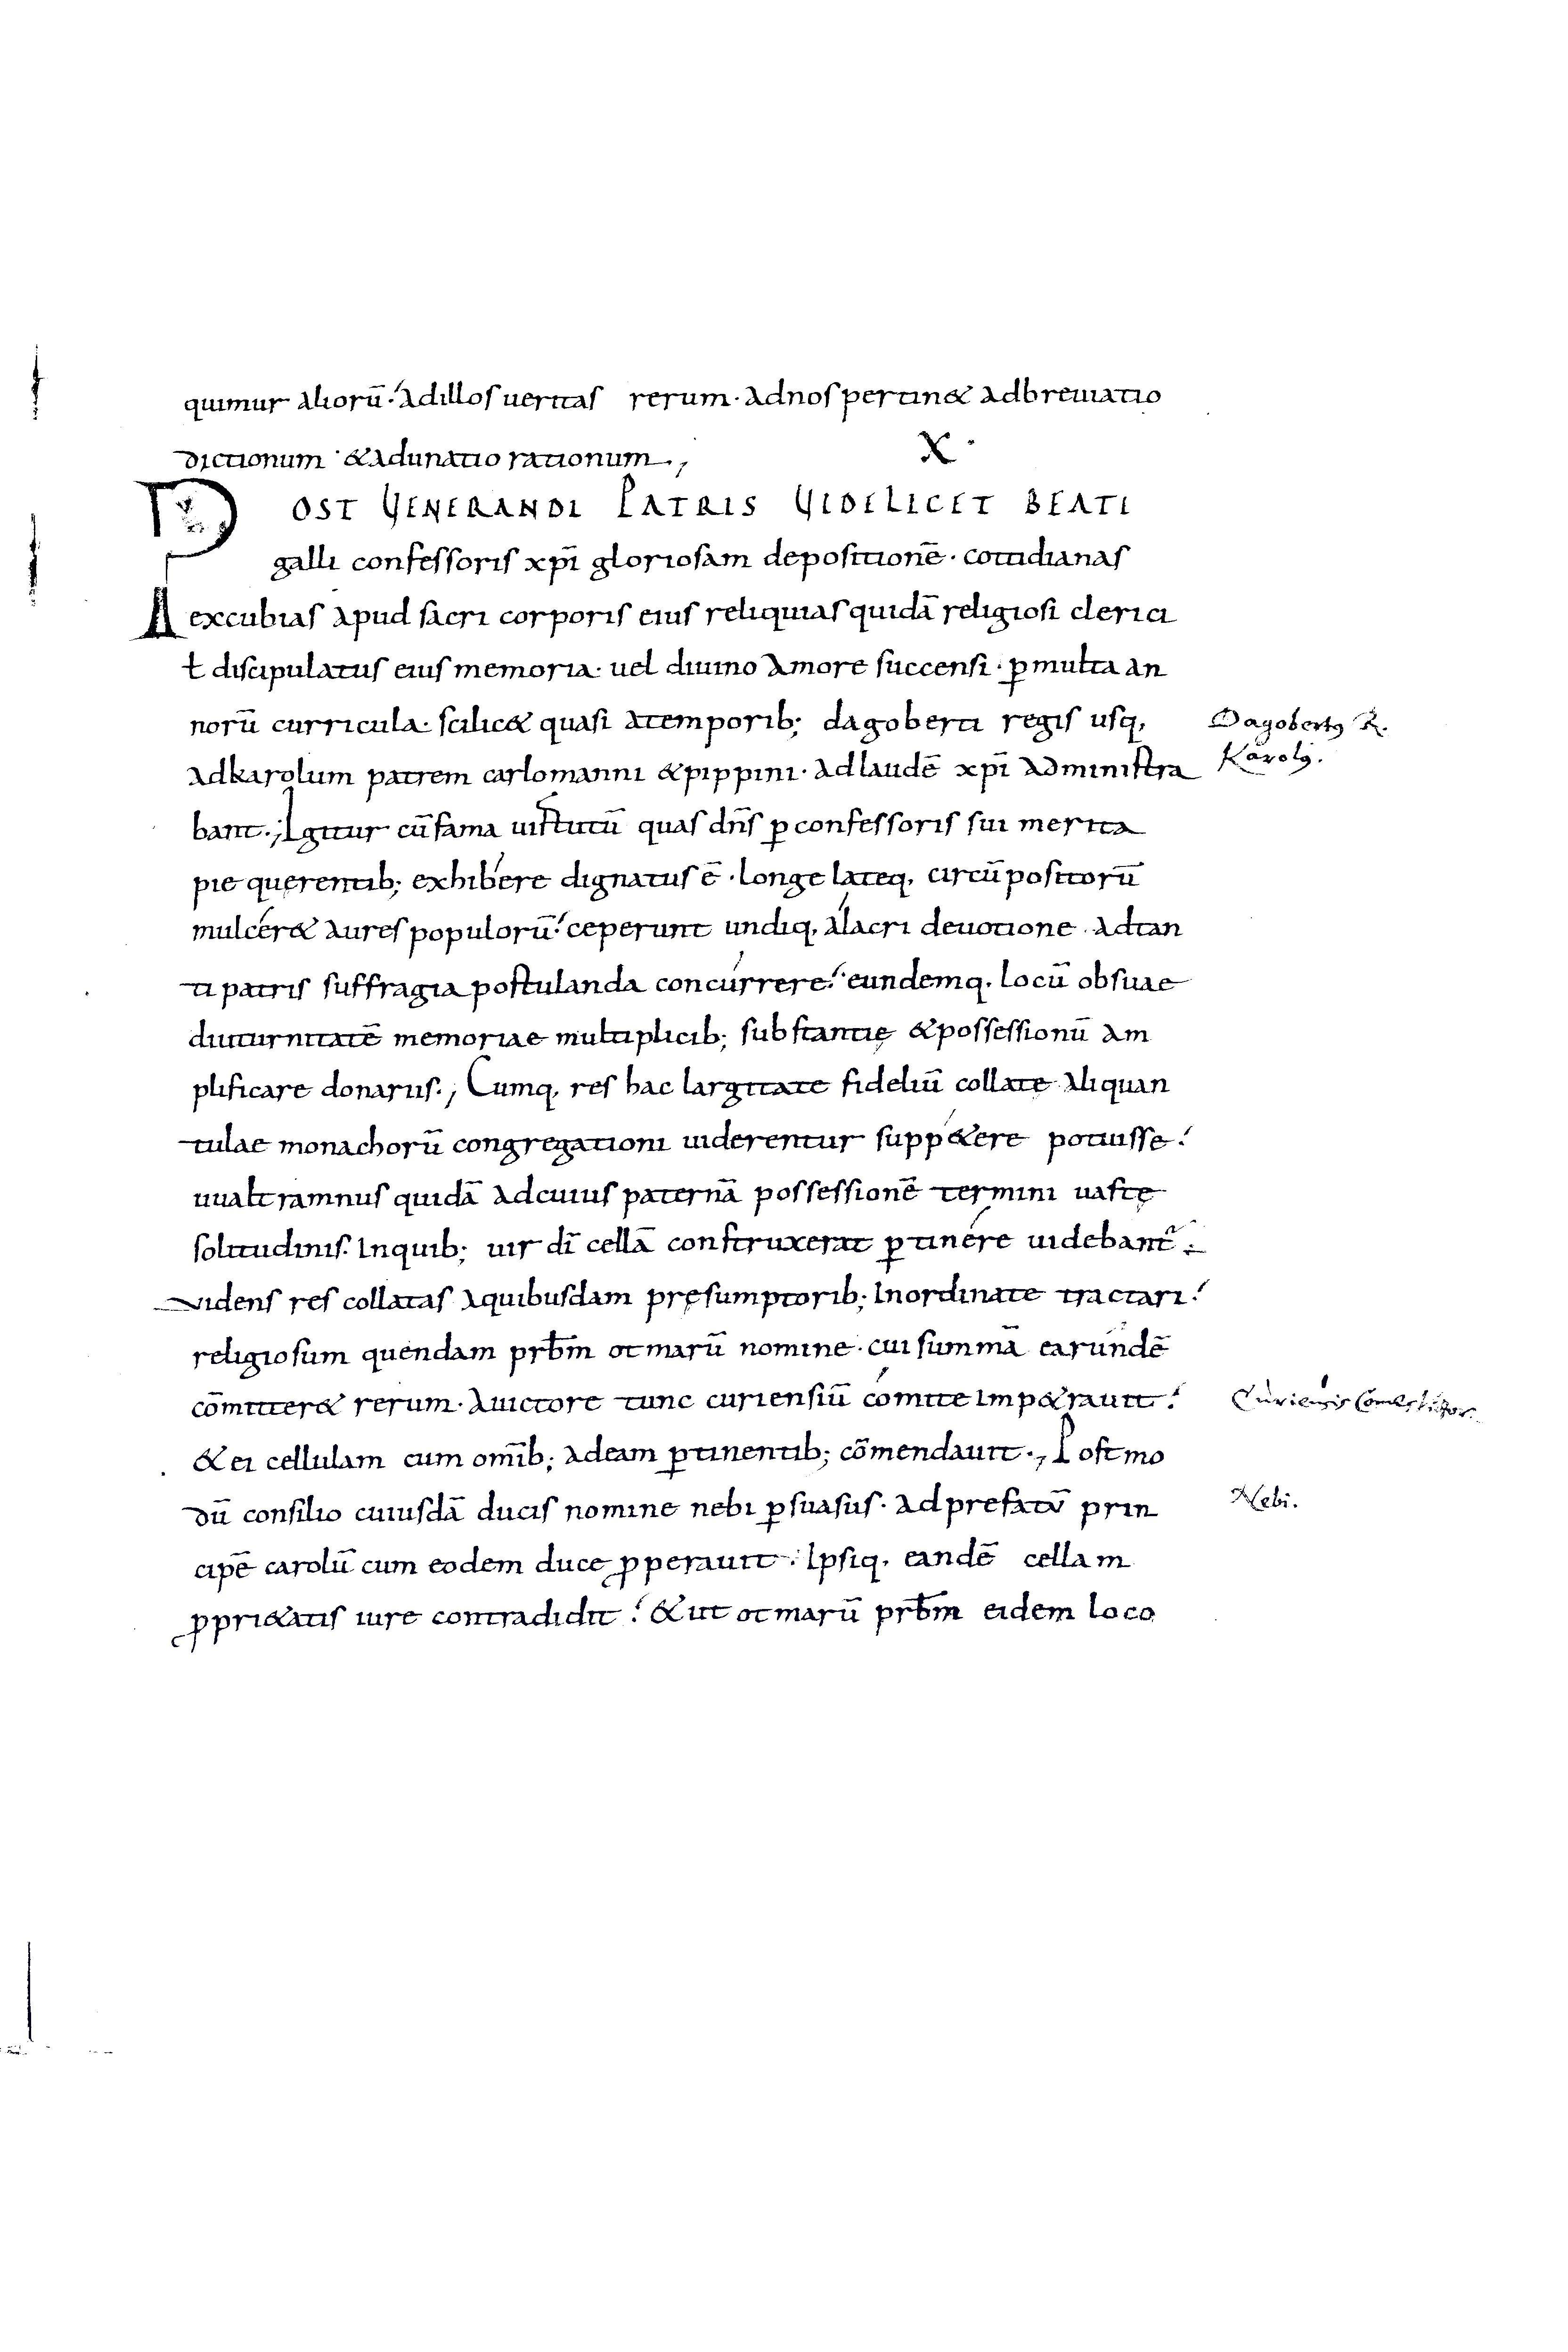 quimur aliorū· adillos ueritas rerum· adnos pertin& adbreuiatio
dictionum · &adunatio rationum·,
X·
POST VENERANDI PATRIS VIDELICET BEATI
galli confessoris xp̄i gloriosam depositionē· cottidianas
excubias apud sacri corporis eius reliquias quidā religiosi clerici
ł discipulatus eius memoria· uel diuino amore succensi· ꝑ multa an
norū curricula· scilic& quasi atemporib; dagoberti regis usq,
Dagobertꝰ R.
adkarolum patrem carlomanni &pippini· adlaudē xp̄i administra
Karolꝰ.
bant·, Igitur cū fama uirtutū quas dn̄s ꝑ confessoris sui merita
pie querentib; exhibere dignatus ē· longe lateq, circū positorū
mulcer& aures populorū· ceperunt undiq, alacri deuotione adtan
ti patris suffragia postulanda concurrere· eundemq, locū obsuae
diuturnitatē memoriae multiplicib; substantię &possessionū am
plificare donariis·, Cumq, res hac largitate fideliū collatę aliquan
tulae monachorū congregationi uiderentur supp&ere potuisse·
uualtramnus quidā adcuius paternā possessionē termini uastę
solitudinis· Inquib; uir dī cellā construxerat ꝑtinere uidebant᷑·
Videns res collatas aquibusdam pręsumptorib; Inordinate tractari·
A
religiosum quendam prb̄m otmarū nomine· cui summā earundē
cōmitter& rerum· auictore tunc curiensiū comite Imp&rauit·
Curiensis Comes Victor.
& ei cellulam cum om̄ib; adeam ꝑtinentib; cōmendauit·, Post mo
dū consilio cuiusdā ducis nomine nebi ꝑsuasus· ad prefatū prin
Nebi.
cipē carolū cum eodem duce ꝓperauit· Ipsiq, eandē cellam
ꝓpri&atis iure contradidit· & ut otmarū prb̄m eidem loco